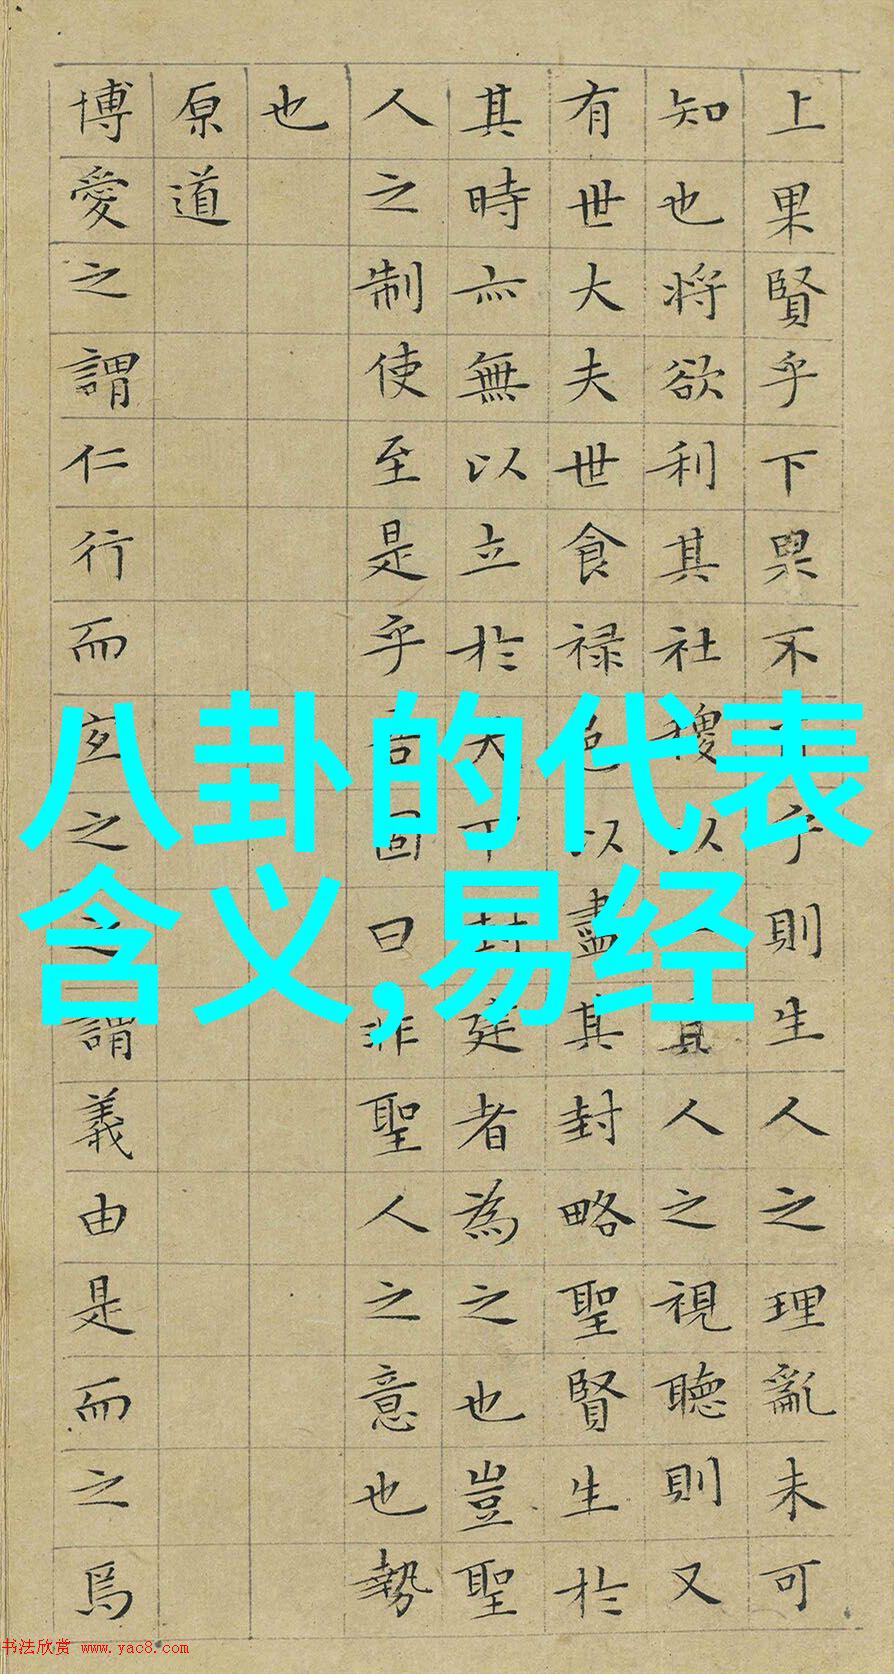 上果賢乎下果不乎則生人之理亂未可
知也將欲利其社稷以其人之視聽則又
有世大夫世食禄邑以盡其封略聖賢生於
其時亦無以立於天下封建者為之也豈聖
人之制使至是乎吾固曰非聖人之意也勢
也
原道
博愛之謂仁行而宜之之謂義由是而之焉
八卦的代表
含义,易经
书法欣赏 www.yac8.com